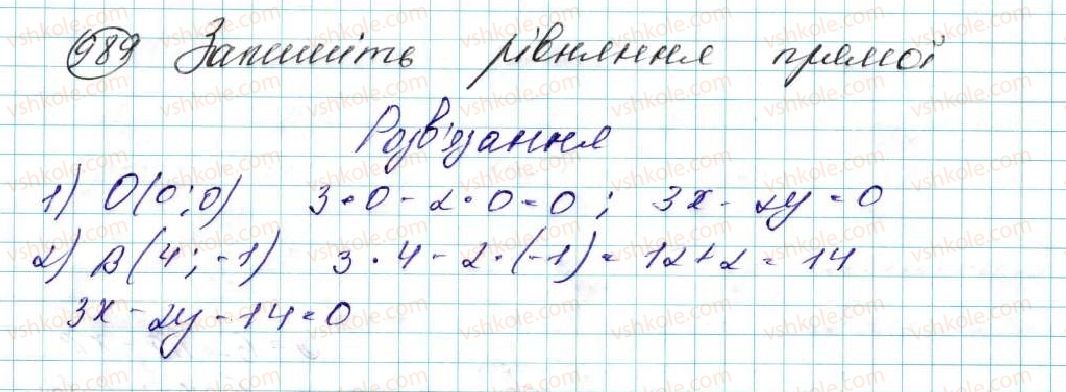 989 Запишіть рівняння прямої
Розв'язання
1) O(0; 0) 3·0 - 2·0 = 0; 3x - 2y = 0
2) B(4; -1) 3·4 - 2·(-1) = 12 + 2 = 14
3x - 2y - 14 = 0